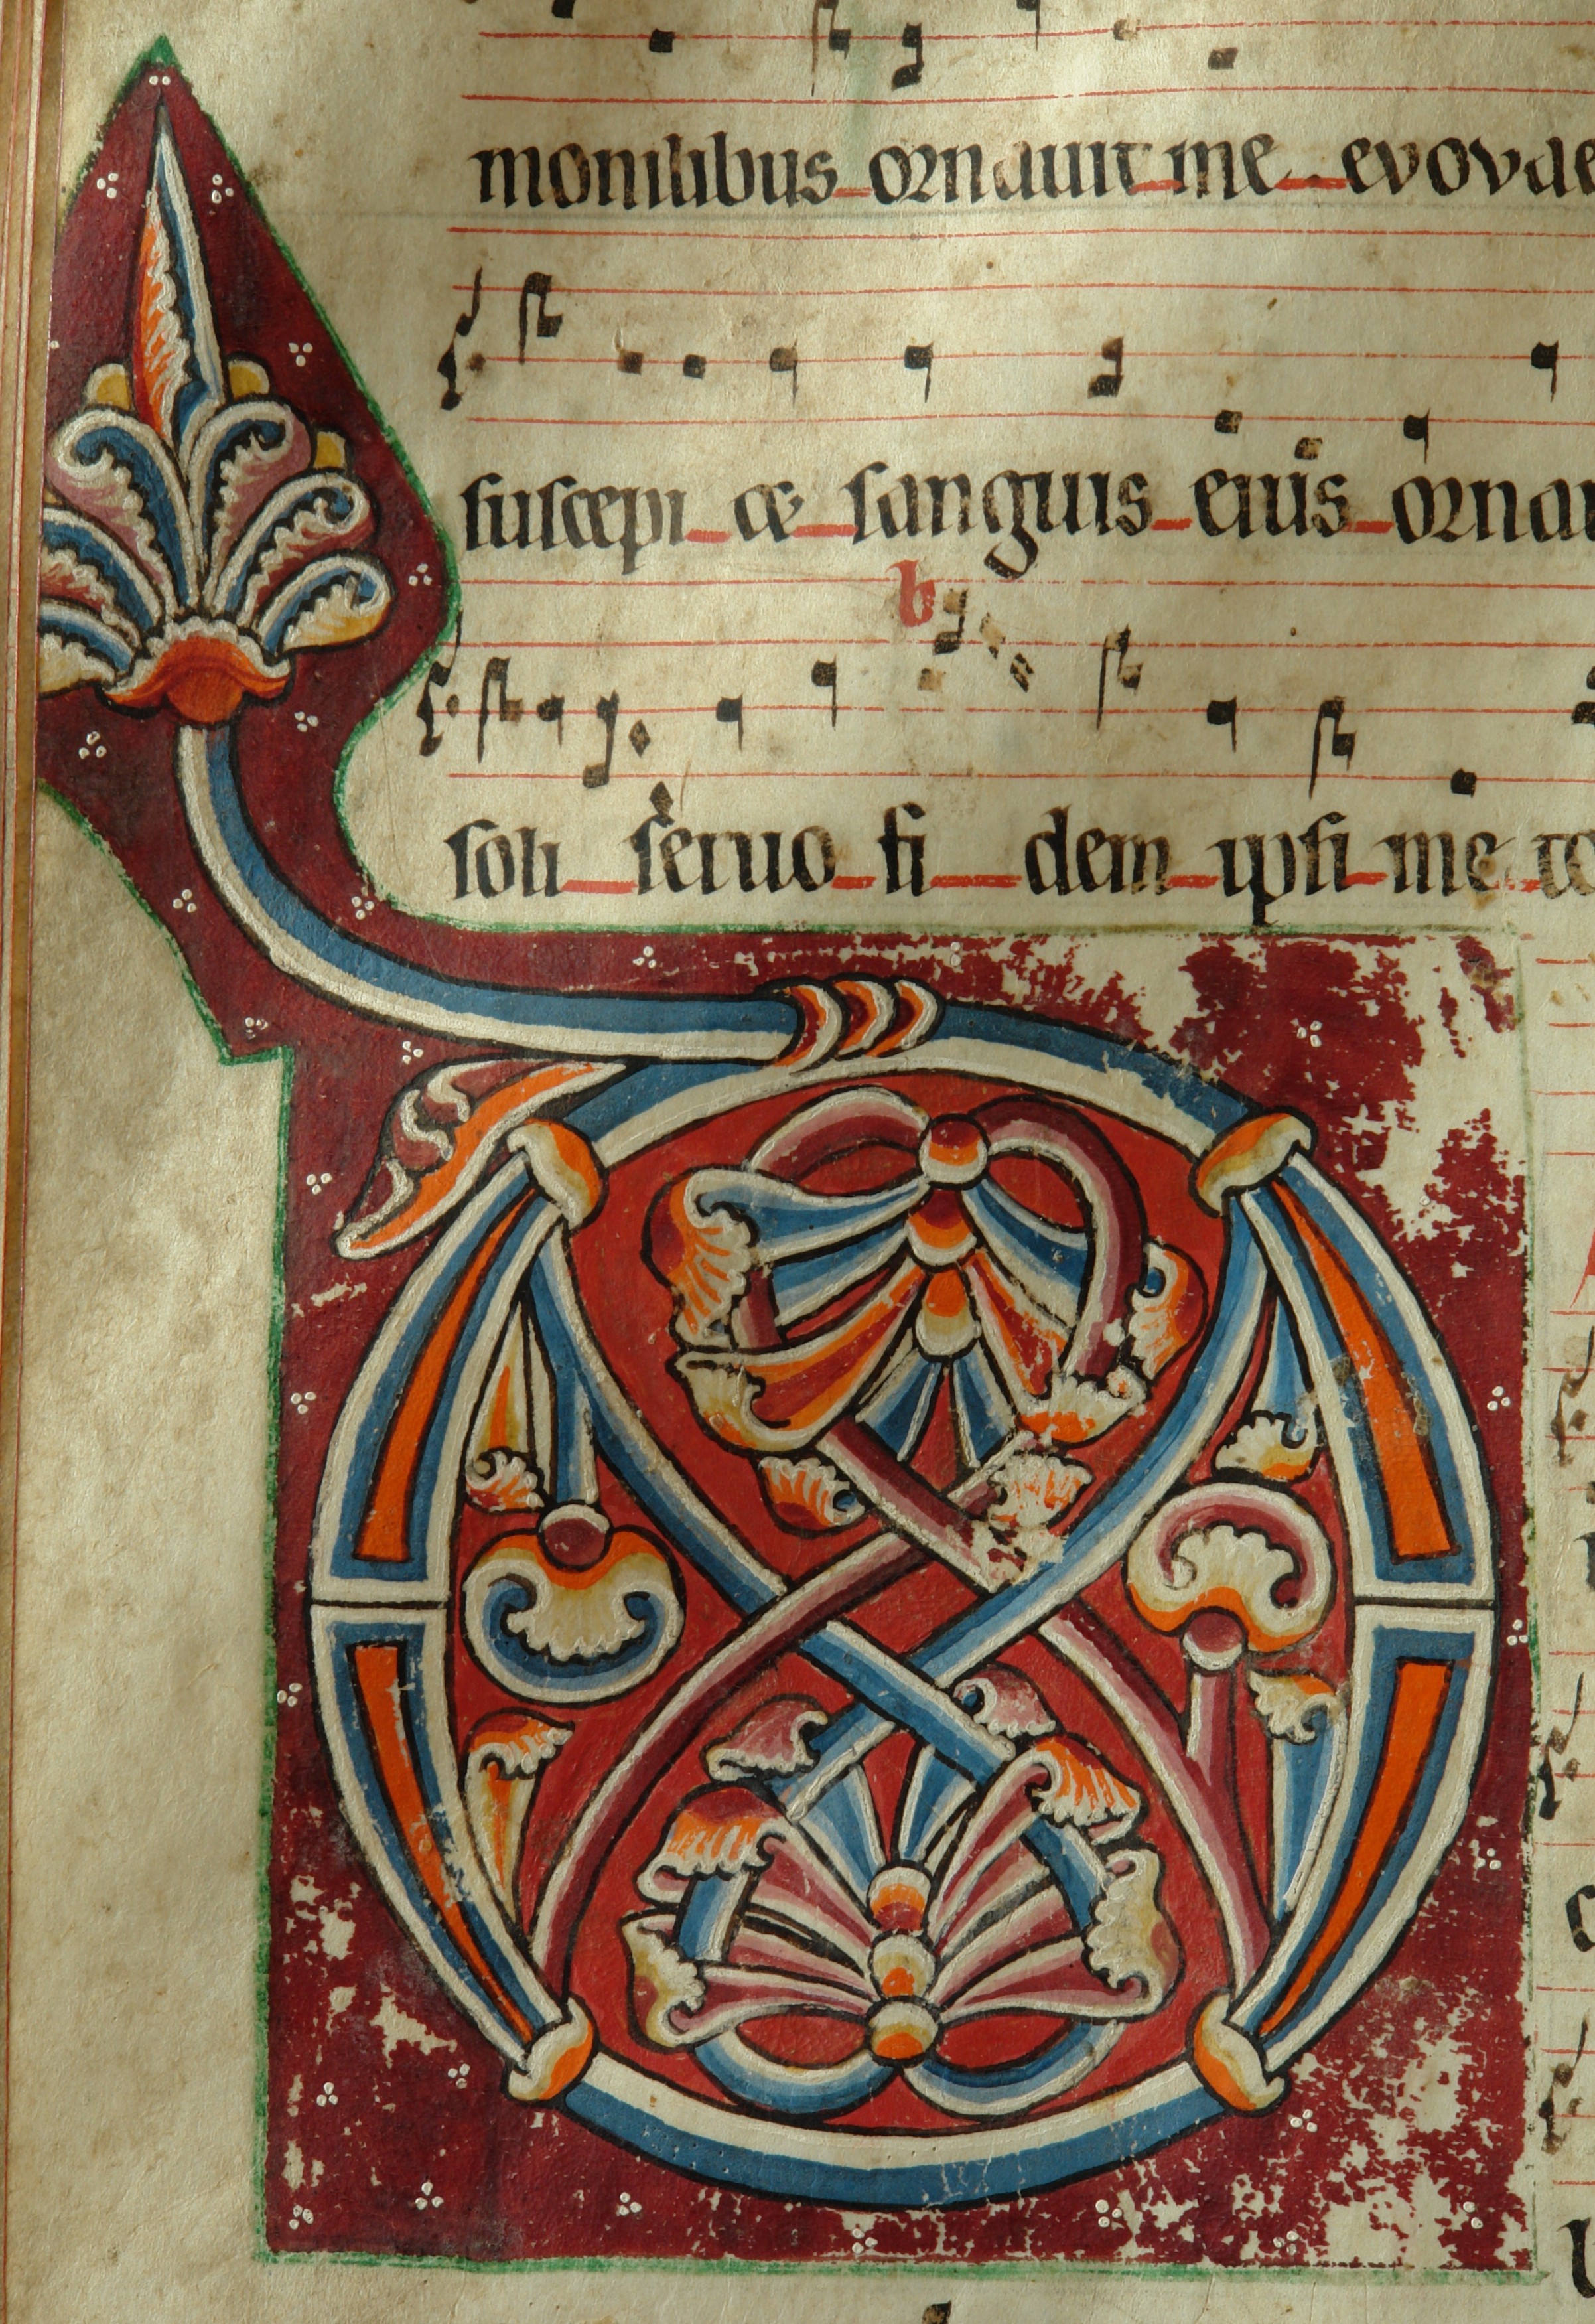 monilibus ornauit me evovae
suscepi & sanguis eius ornau
b
soli seruo fi dem ipsi me
D